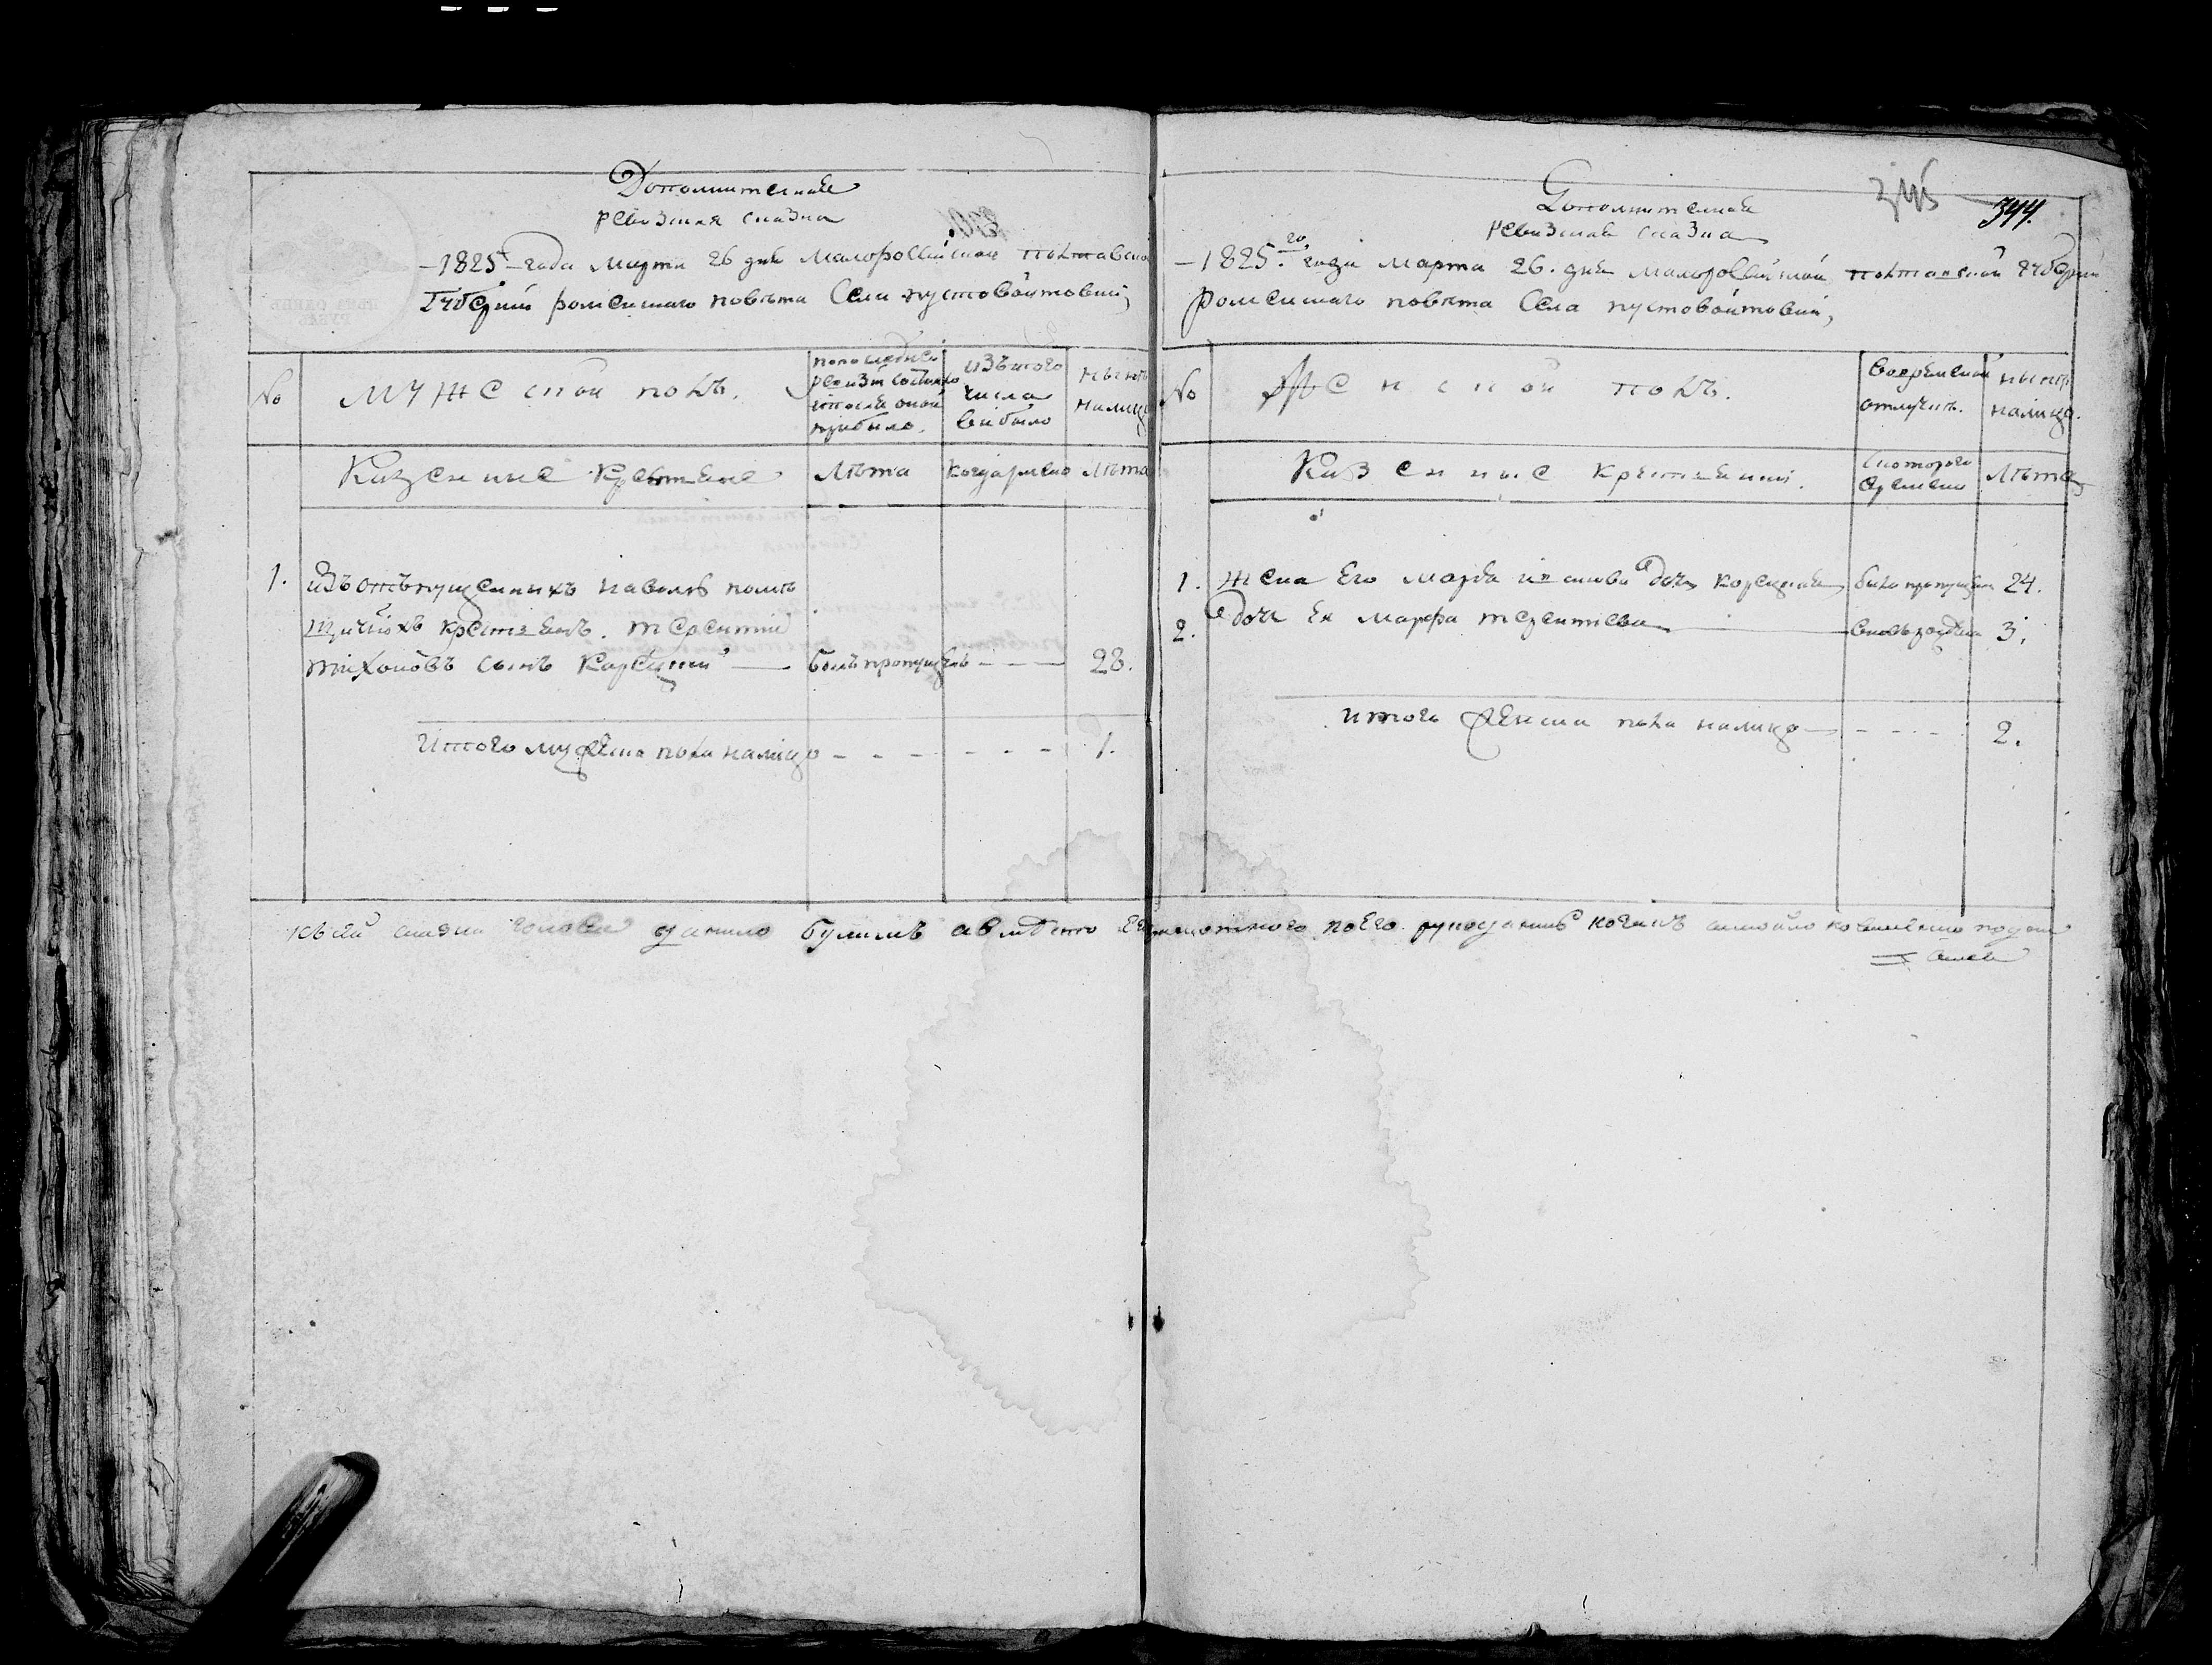 Дополнительная
ревизкая сказка
1825 года марта 26 дня Малороссийской Полтавской
Губернии роменского повета Села пустовойтовки,
№
мужеской полъ.
по последней
ревизии состояло
и после оной
прибыло.
изътого
числа
выбыло
ныне
налицо
Казенные Крестьяне
Лета
когда имено
Лета
1. изъ отъпущенныхъ наволю поме
щичихъ крестьянъ. терентий
тихоновъ сынъ Корсунъ
былъ пропущенъ
28.
Итого мужеска пола налицо
1.
Дополнительная
ревизкая сказка
344.
1825.го года марта 26. дня малороссийской полтавской губернии
роменского повета Села пустовойтовки,
№
Женской полъ.
во временной
отлучке.
ныне
налицо.
Казенные крестьянки.
с которого
времени
Лета
1. жена его марфа дочь
была пропущена
24.
2. дочь Ея марфа терентиева
вновь рождена
3.
итого женска пола налицо
2.
къ сей сказки голова данило а вместо его неграмотного по его рукоданию